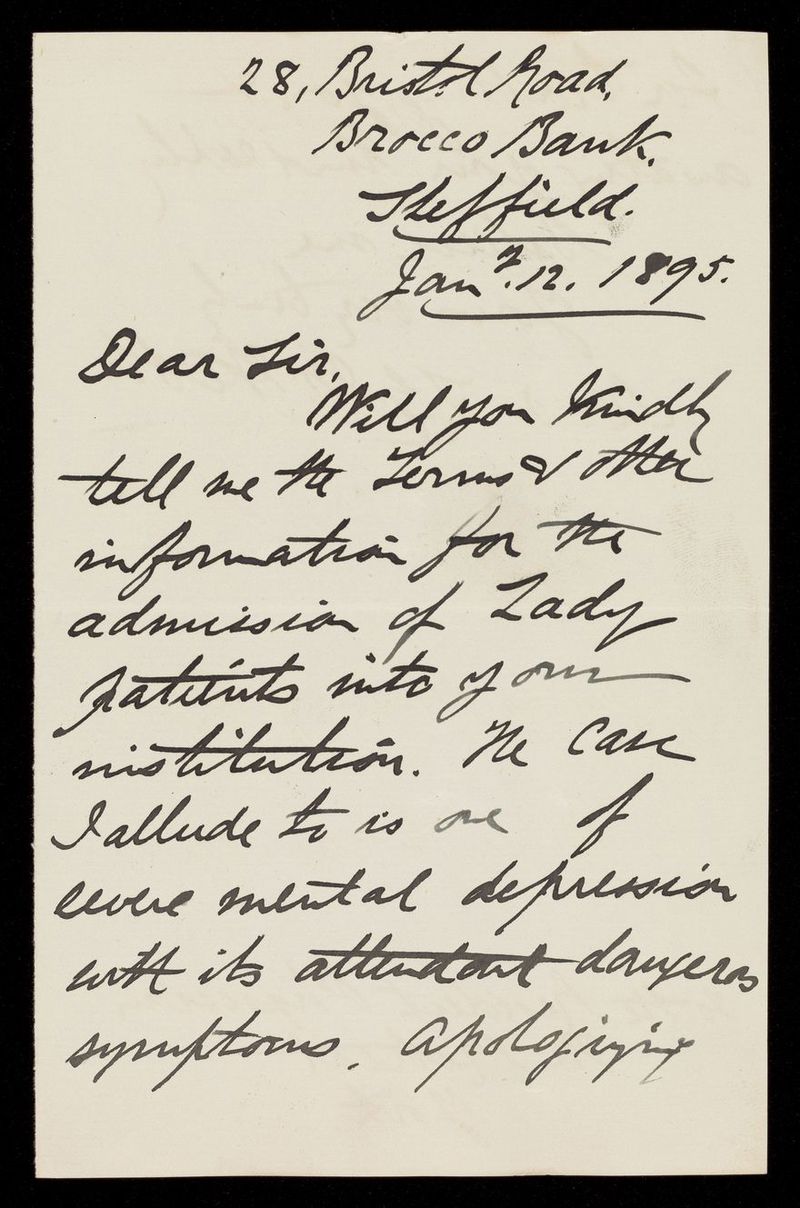 28, Bristol Road,
Brocco Bank.
Sheffield.
Jany. 12. 1895.
Dear Sir,
Will you kindly
tell me the terms & other
information for the
admission of Lady
patients into your
institution. The case
I allude to is one of
severe mental depression
with its attendant dangerous
symptoms. Apologizing